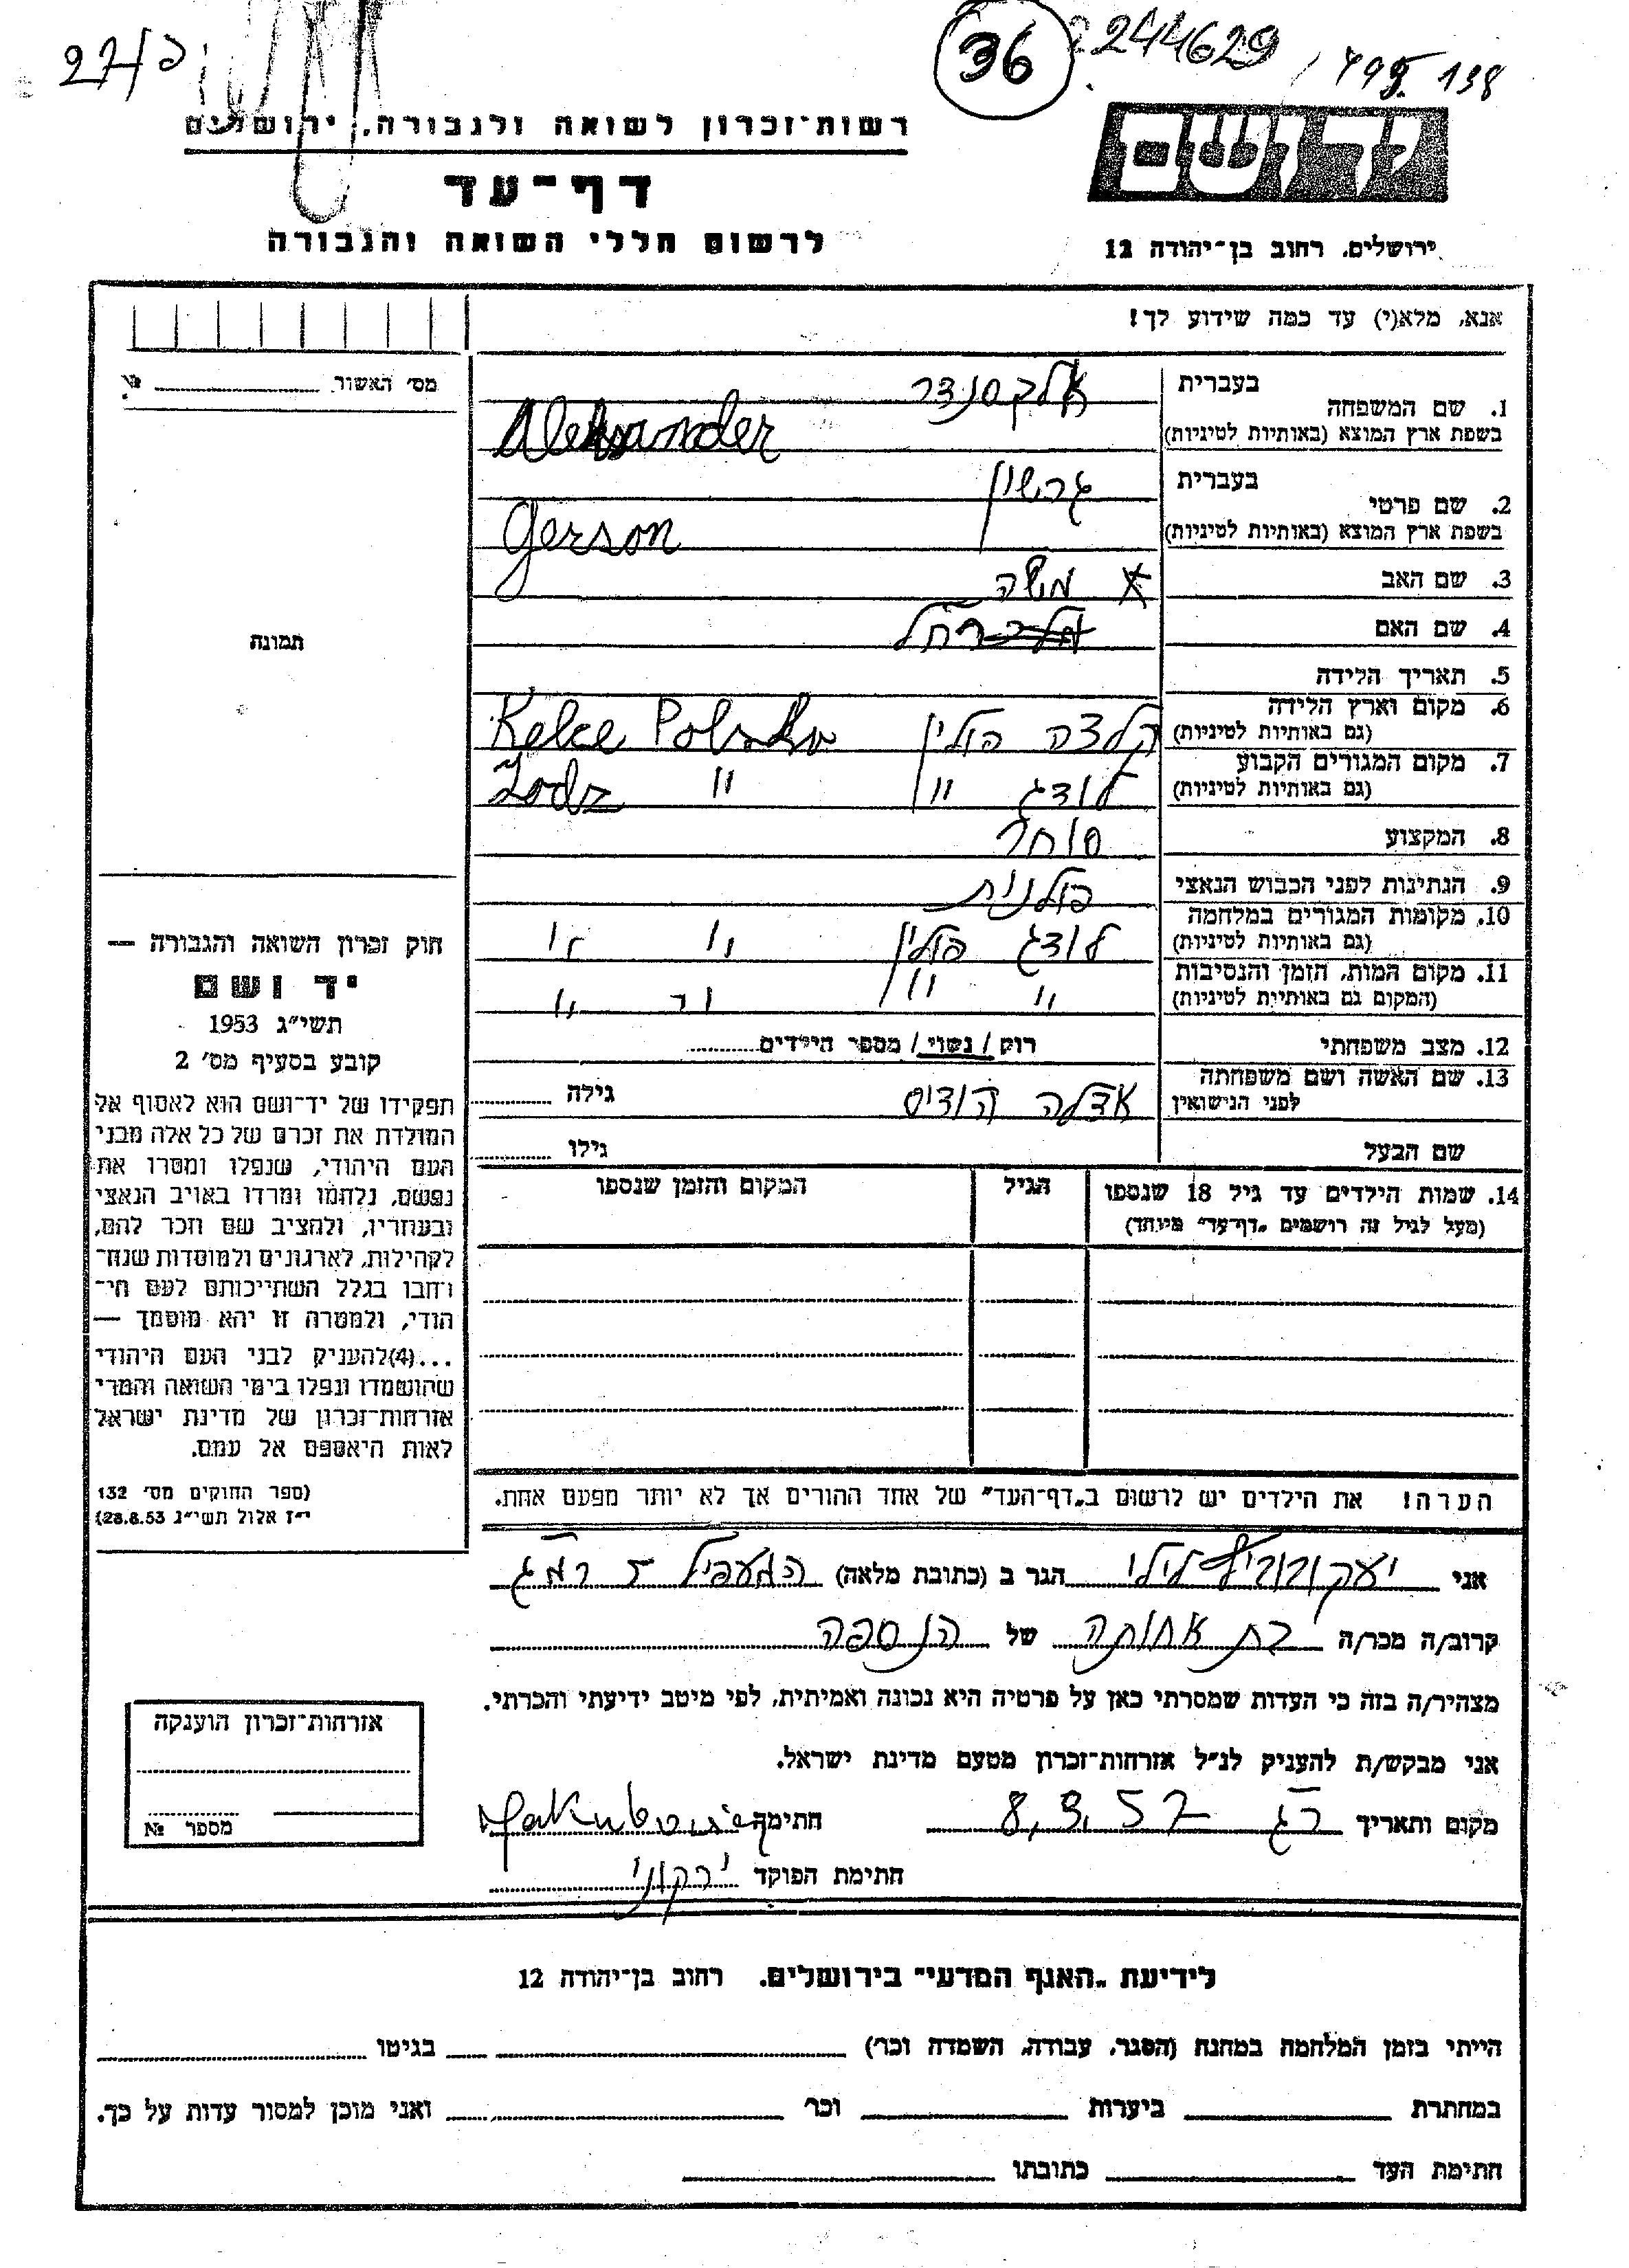 27/פ
36
244629 / 799. 138
רשות־זכרון לשואה ולגבורה, ירושלים
יד ושם
דף־עד
לרשום חללי השואה והגבורה
ירושלים, רחוב בן־יהודה 12
אנא, מלא(י) עד כמה שידוע לך!
מס׳ האשור № 
1. שם המשפחה בעברית אלכסנדר
בשפת ארץ המוצא (באותיות לטיניות) Aleksander
2. שם פרטי בעברית גרשון
בשפת ארץ המוצא (באותיות לטיניות) Gerson
3. שם האב משה
4. שם האם רחל
תמונה
5. תאריך הלידה
6. מקום וארץ הלידה (גם באותיות לטיניות) קלצה פולין Kelce Polska
7. מקום המגורים הקבוע (גם באותיות לטיניות) לודג " Lodz "
8. המקצוע סוחר
9. הנתינות לפני הכבוש הנאצי פולנית
10. מקומות המגורים במלחמה (גם באותיות לטיניות) לודג פולין " "
11. מקום המות, הזמן והנסיבות (המקום גם באותיות לטיניות) " " " "
12. מצב משפחתי רווק / נשוי / מספר הילדים
13. שם האשה ושם משפחתה לפני הנישואין אדלה גילה
שם הבעל גילו
14. שמות הילדים עד גיל 18 שנספו הגיל המקום והזמן שנספו
(מעל לגיל זה רושמים „דף־עד״ מיוחד)
חוק זכרון השואה והגבורה —
יד ושם
תשי״ג 1953
קובע בסעיף מס׳ 2
תפקידו של יד־ושם הוא לאסוף אל
המולדת את זכרם של כל אלה מבני
העם היהודי, שנפלו ומסרו את
נפשם, נלחמו ומרדו באויב הנאצי
ובעוזריו, ולהציב שם וזכר להם,
לקהילות, לארגונים ולמוסדות שנח־
רבו בגלל השתייכותם לעם הי־
הודי, ולמטרה זו יהא מוסמך —
...(4)להעניק לבני העם היהודי
שהושמדו ונפלו בימי השואה והמרי
אזרחות־זכרון של מדינת ישראל
לאות היאספם אל עמם.
(ספר החוקים מס׳ 132
י״ז אלול תשי״ג 28.8.53)
הערה! את הילדים יש לרשום ב„דף־העד״ של אחד ההורים אך לא יותר מפעם אחת.
אני יעקובוביץ לילי הגר ב (כתובת מלאה) המעפיל 5 רמ״ג
קרוב/ה מכר/ה בת אחותה של הנספה
מצהיר/ה בזה כי העדות שמסרתי כאן על פרטיה היא נכונה ואמיתית, לפי מיטב ידיעתי והכרתי.
אני מבקש/ת להעניק לנ״ל אזרחות־זכרון מטעם מדינת ישראל.
מקום ותאריך רג 8.3.57 חתימה
חתימת הפוקד ירקוני
אזרחות־זכרון הוענקה
מספר №
לידיעת „האגף המדעי״ בירושלים. רחוב בן־יהודה 12
הייתי בזמן המלחמה במחנה (הסגר, עבודה, השמדה וכר׳) בגיטו
במחתרת ביערות וכר׳ ואני מוכן למסור עדות על כך.
חתימת העד כתובתו